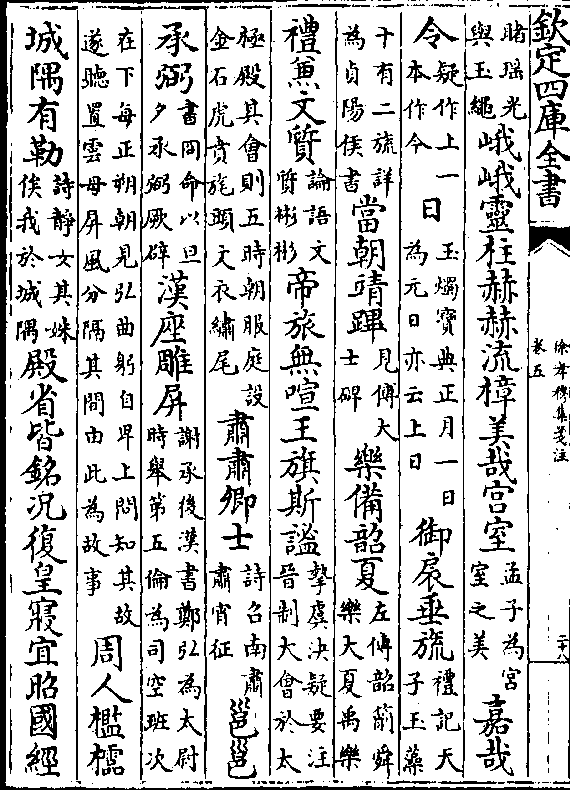 欽定四庫全書
睹瑶光
與玉繩
峨峨靈柱赫赫流樟美哉宫室
孟子為宫
室之美
嘉哉
令
疑作上
本作令
一日
玉燭寶典正月一日
為元日亦云上日
御扆垂旒
禮記天
子玉藻
十有二旒詳
為貞陽侯書
當朝靖蹕
見傅大
士碑
樂備韶夏
左傳韶箾舜
樂大夏禹樂
禮兼文質
論語文
質彬彬
帝旅無喧王旗斯謐
摯虞決疑要注
晉制大會於太
極殿其會則五時朝服庭設
金石虎賁旄頭文衣繡尾
肅肅卿士
詩召南肅
肅宵征
邕邕
承弼
書冏命以旦
夕承弼厥辟
漢座雕屏
謝承後漢書鄭弘為太尉
時舉第五倫為司空班次
在下每正朔朝見弘曲躬自卑上問知其故
遂聽置雲母屏風分隔其間由此為故事
周人檻檽
城隅有勒
詩靜女其姝
俟我於城隅
殿省皆銘況復皇寢宜昭國經
徐孝穆集箋注
卷五
二十八